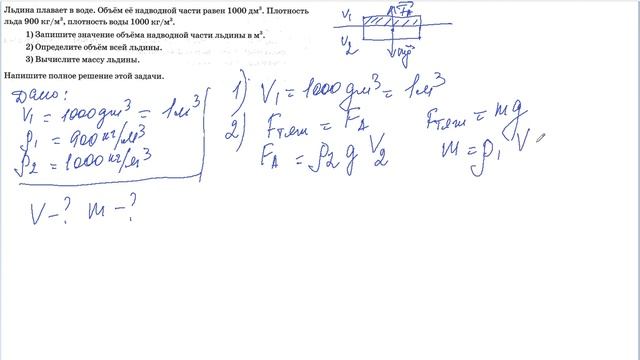 Льдина плавает в воде. Объём её надводной части равен 1000 дм³. Плотность
льда 900 кг/м³, плотность воды 1000 кг/м³.
1) Запишите значение объёма надводной части льдины в м³.
2) Определите объём всей льдины.
3) Вычислите массу льдины.
Напишите полное решение этой задачи.
V₁
V₂
F⃗A
mg⃗
Дано:
V₁ = 1000 дм³ = 1 м³
ρ₁ = 900 кг/м³
ρ₂ = 1000 кг/м³
V - ? m - ?
1) V₁ = 1000 дм³ = 1 м³
2) Fтяж = FA Fтяж = mg
FA = ρ₂ g V₂ m = ρ₁ V